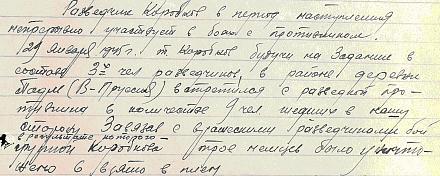 Разведчик Коробков в период наступления
непрерывно участвует в боях с противником.
29 января 1945г. т. Коробков будучи на Задании в
составе 3х чел разведчиков, в районе деревни
(В-Пруссия) встретился с разведкой про-
тивника в количестве 9 чел. шедших в нашу
сторону Завязав с вражескими разведчиками бой
в результате которого
группой Коробкова трое немцев было уничто-
жено 6 взято в плен